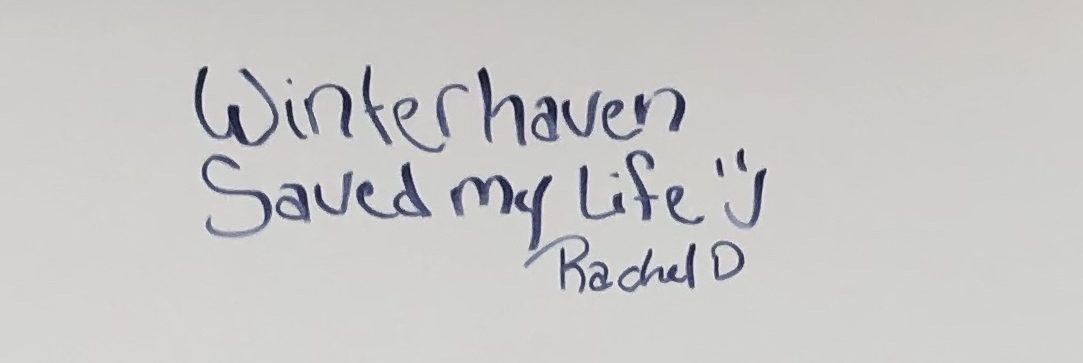 Winterhaven
Saved my Life :)
Rachel D